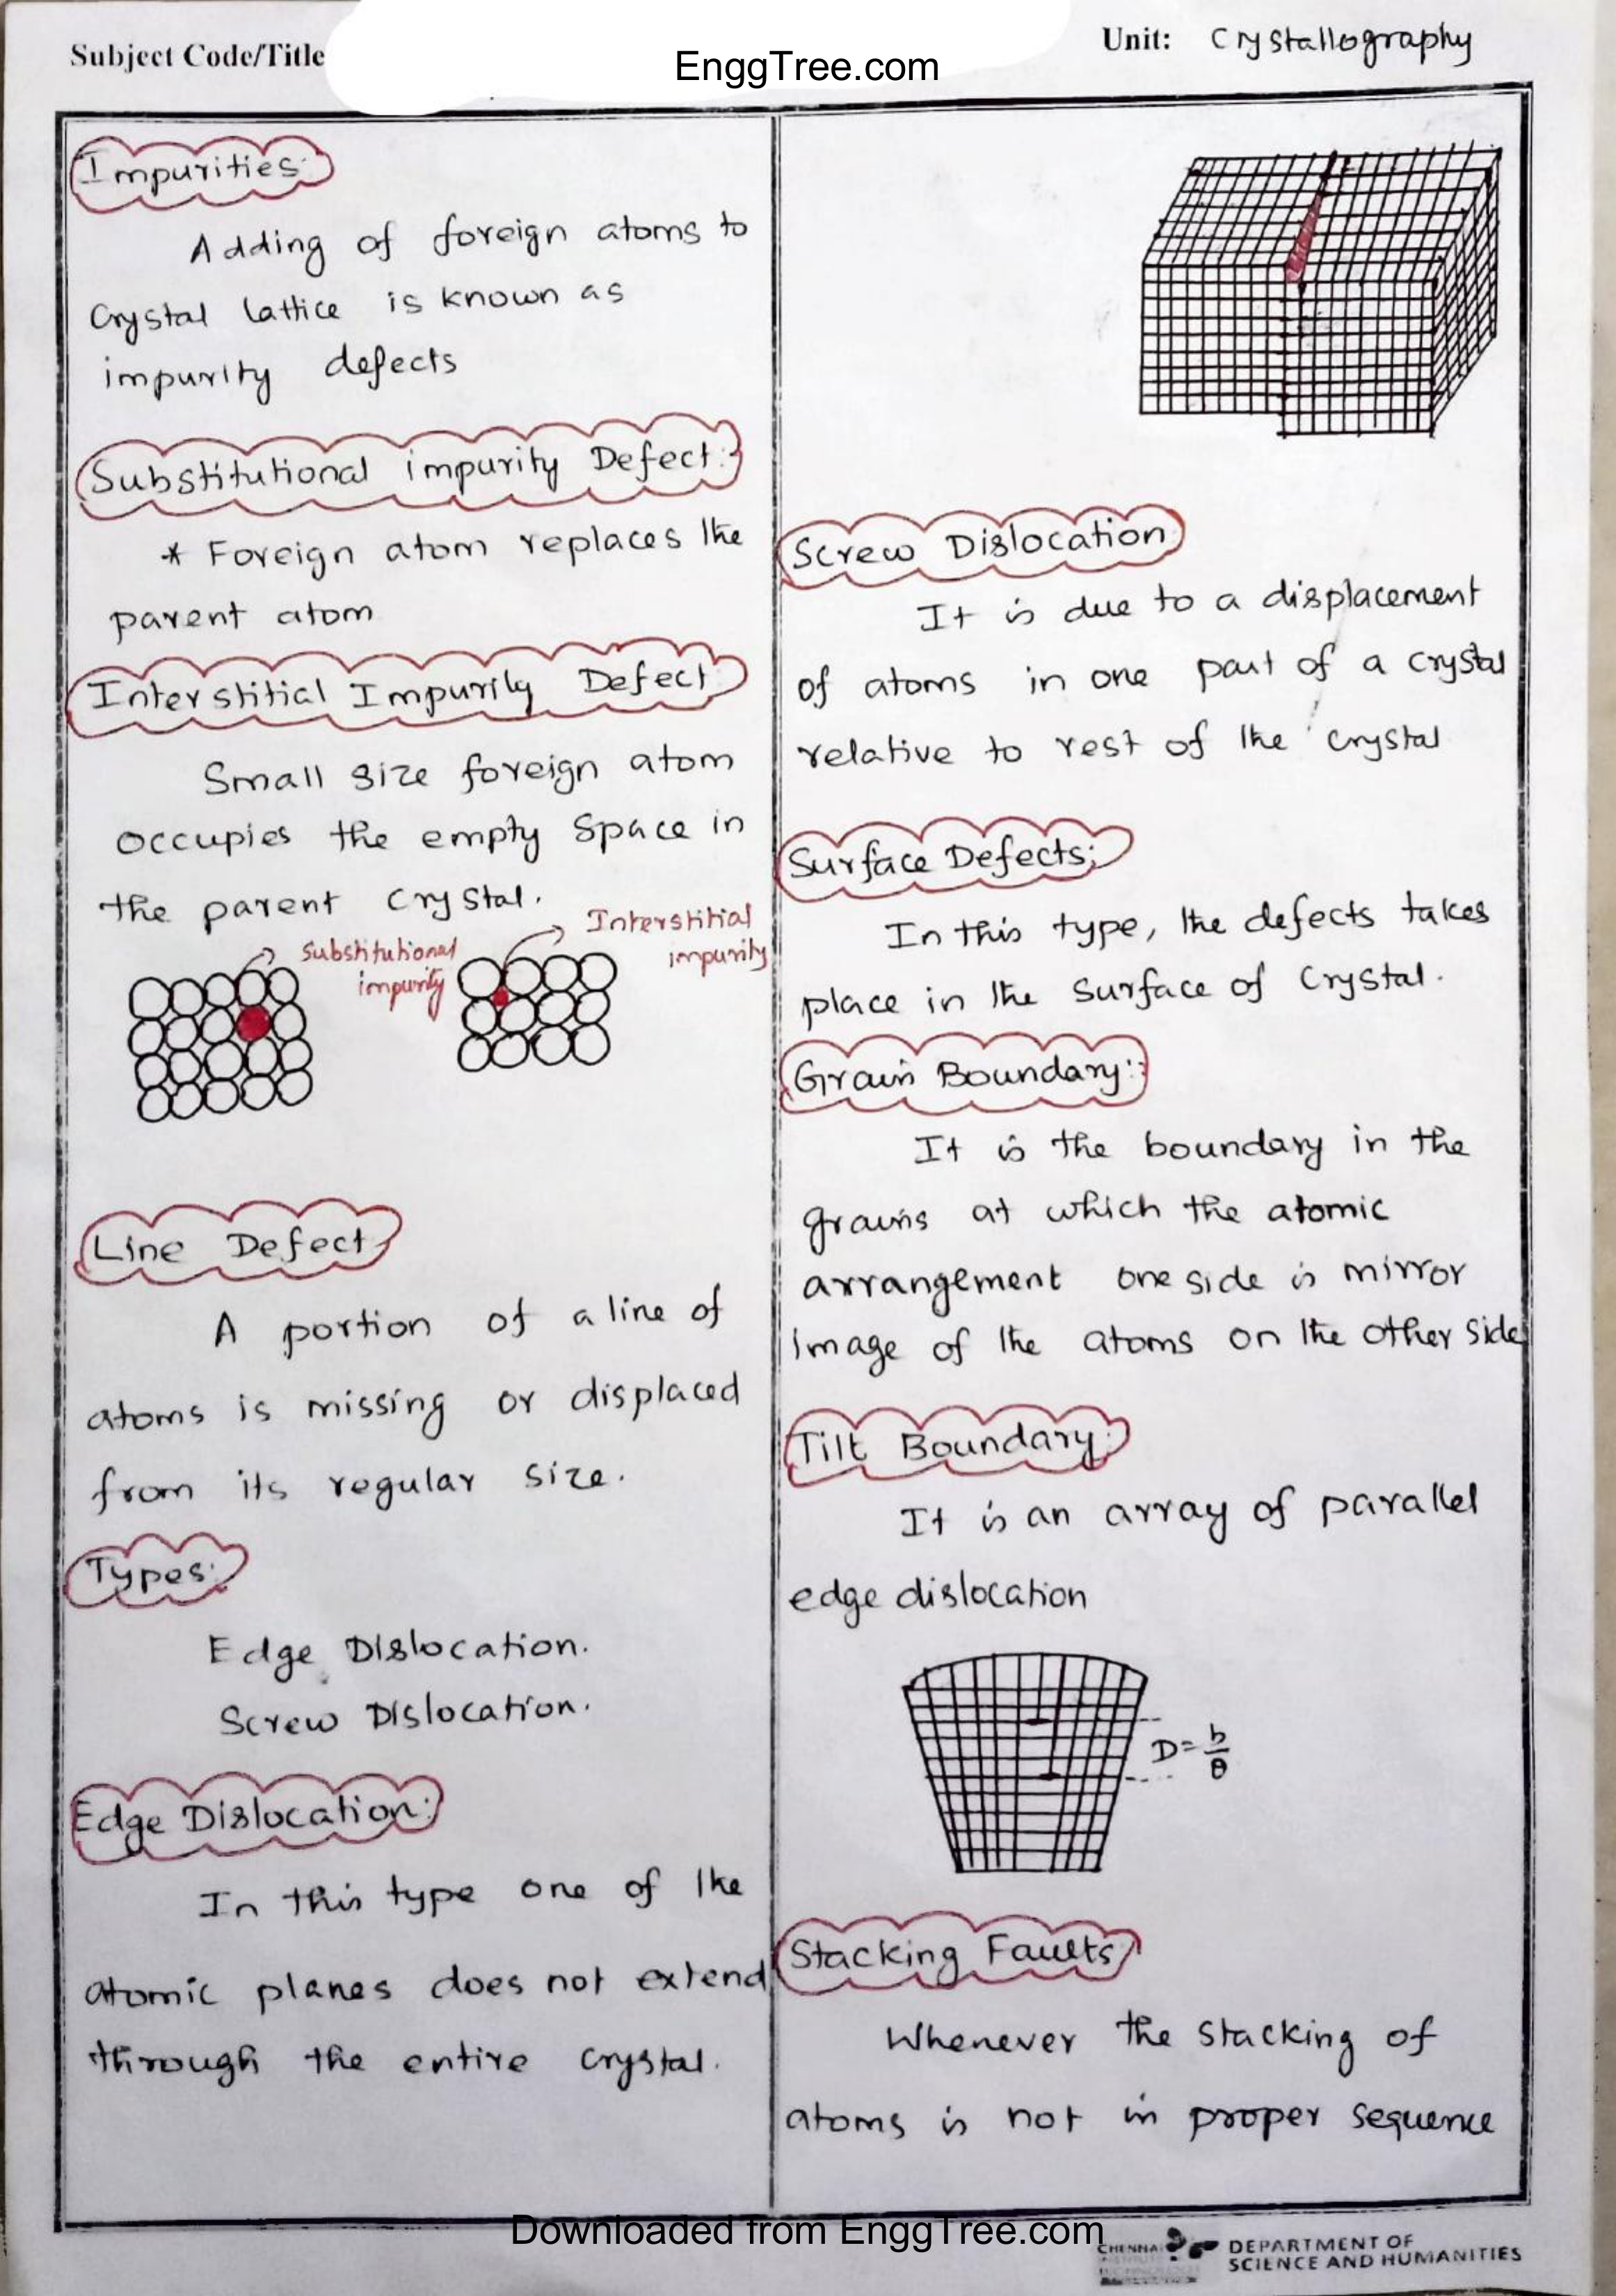 Subject Code/Title
EnggTree.com
Unit: Crystallography
Impurities:
Adding of foreign atoms to
Crystal lattice is known as
impurity defects
Substitutional impurity Defect:
* Foreign atom replaces the
parent atom
Interstitial Impurity Defect
Small size foreign atom
occupies the empty space in
the parent crystal.
Substitutional
impurity
Interstitial
impurity
Line Defect
A portion of a line of
atoms is missing or displaced
from its regular size.
Types:
Edge Dislocation.
Screw Dislocation.
Edge Dislocation:
In this type one of the
atomic planes does not extend
through the entire crystal.
Screw Dislocation
It is due to a displacement
of atoms in one part of a crystal
relative to rest of the crystal
Surface Defects:
In this type, the defects takes
place in the surface of crystal.
Grain Boundary:
It is the boundary in the
grains at which the atomic
arrangement one side is mirror
image of the atoms on the other side
Tilt Boundary:
It is an array of parallel
edge dislocation
D = b/θ
Stacking Faults
Whenever the stacking of
atoms is not in proper sequence
Downloaded from EnggTree.com
CHENNAI
DEPARTMENT OF
SCIENCE AND HUMANITIES